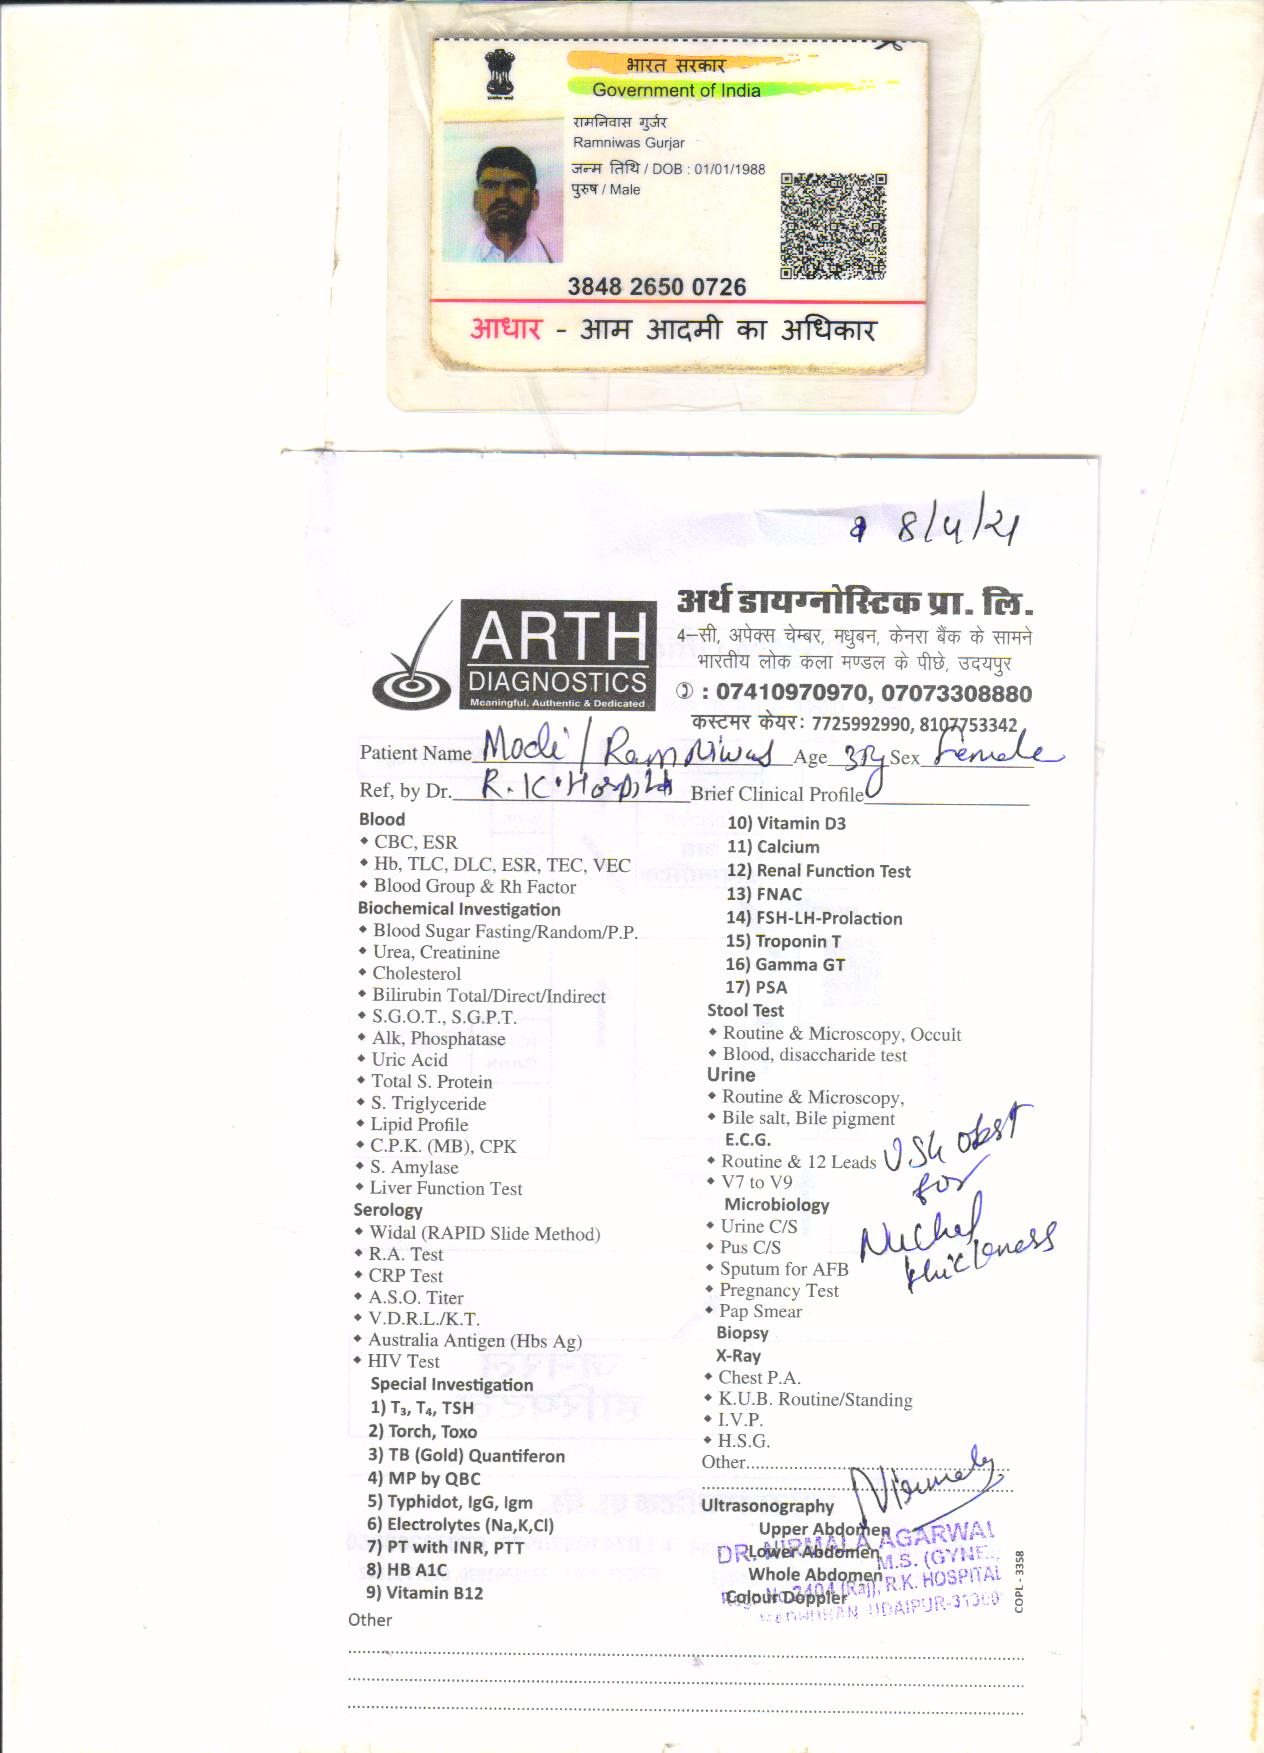 भारत सरकार
Government of India
रामनिवास गुर्जर
Ramniwas Gurjar
जन्म तिथि / DOB : 01/01/1988
पुरुष / Male
3848 2650 0726
आधार - आम आदमी का अधिकार
8/4/21
ARTH
DIAGNOSTICS
Meaningful, Authentic & Dedicated
अर्थ डायग्नोस्टिक प्रा. लि.
4-सी, अपेक्स चेम्बर, मधुबन, केनरा बैंक के सामने
भारतीय लोक कला मण्डल के पीछे, उदयपुर
: 07410970970, 07073308880
कस्टमर केयर: 7725992990, 8107753342
Patient Name Modi / Ramniwas Age Sex Female
Ref, by Dr. R.K. Hospital Brief Clinical Profile
Blood
CBC, ESR
Hb, TLC, DLC, ESR, TEC, VEC
Blood Group & Rh Factor
Biochemical Investigation
Blood Sugar Fasting/Random/P.P.
Urea, Creatinine
Cholesterol
Bilirubin Total/Direct/Indirect
S.G.O.T., S.G.P.T.
Alk, Phosphatase
Uric Acid
Total S. Protein
S. Triglyceride
Lipid Profile
C.P.K. (MB), CPK
S. Amylase
Liver Function Test
Serology
Widal (RAPID Slide Method)
R.A. Test
CRP Test
A.S.O. Titer
V.D.R.L./K.T.
Australia Antigen (Hbs Ag)
HIV Test
Special Investigation
1) T₃, T₄, TSH
2) Torch, Toxo
3) TB (Gold) Quantiferon
4) MP by QBC
5) Typhidot, IgG, Igm
6) Electrolytes (Na,K,Cl)
7) PT with INR, PTT
8) HB A1C
9) Vitamin B12
Other
10) Vitamin D3
11) Calcium
12) Renal Function Test
13) FNAC
14) FSH-LH-Prolaction
15) Troponin T
16) Gamma GT
17) PSA
Stool Test
Routine & Microscopy, Occult
Blood, disaccharide test
Urine
Routine & Microscopy,
Bile salt, Bile pigment
E.C.G.
Routine & 12 Leads
V7 to V9
Microbiology
Urine C/S
Pus C/S
Sputum for AFB
Pregnancy Test
Pap Smear
Biopsy
X-Ray
Chest P.A.
K.U.B. Routine/Standing
I.V.P.
H.S.G.
Other
USG obst
for
Nuchal
thickness
Nirmala
Ultrasonography
Upper Abdomen
Lower Abdomen
Whole Abdomen
Colour Doppler
DR. NIRMALA AGARWAL
M.S. (GYNE.
(Raj), R.K. HOSPITAL
UDAIPUR-
COPL - 3358